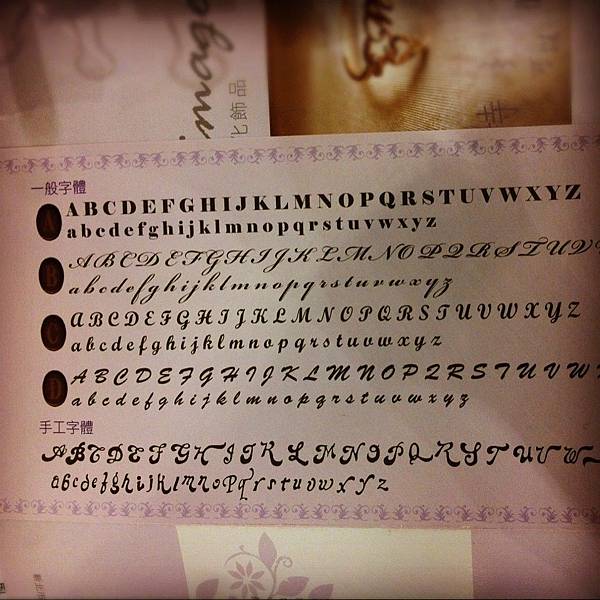 飾品
幸
一般字體
A ABCDEFGHIJKLMNOPQRSTUVWXYZ
abcdefghijklmnopqrstuvwxyz
B ABCDEFGHIJKLMNOPQRSTUV
abcdefghijklmnopqrstuvwxyz
C ABCDEFGHIJKLMNOPQRSTUVWXYZ
abcdefghijklmnopqrstuvwxyz
D ABCDEFGHIJKLMNOPQRSTUVW
abcdefghijklmnopqrstuvwxyz
手工字體
ABCDEFGHIJKLMNOPQRSTUVW
abcdefghijklmnopqrstuvwxyz